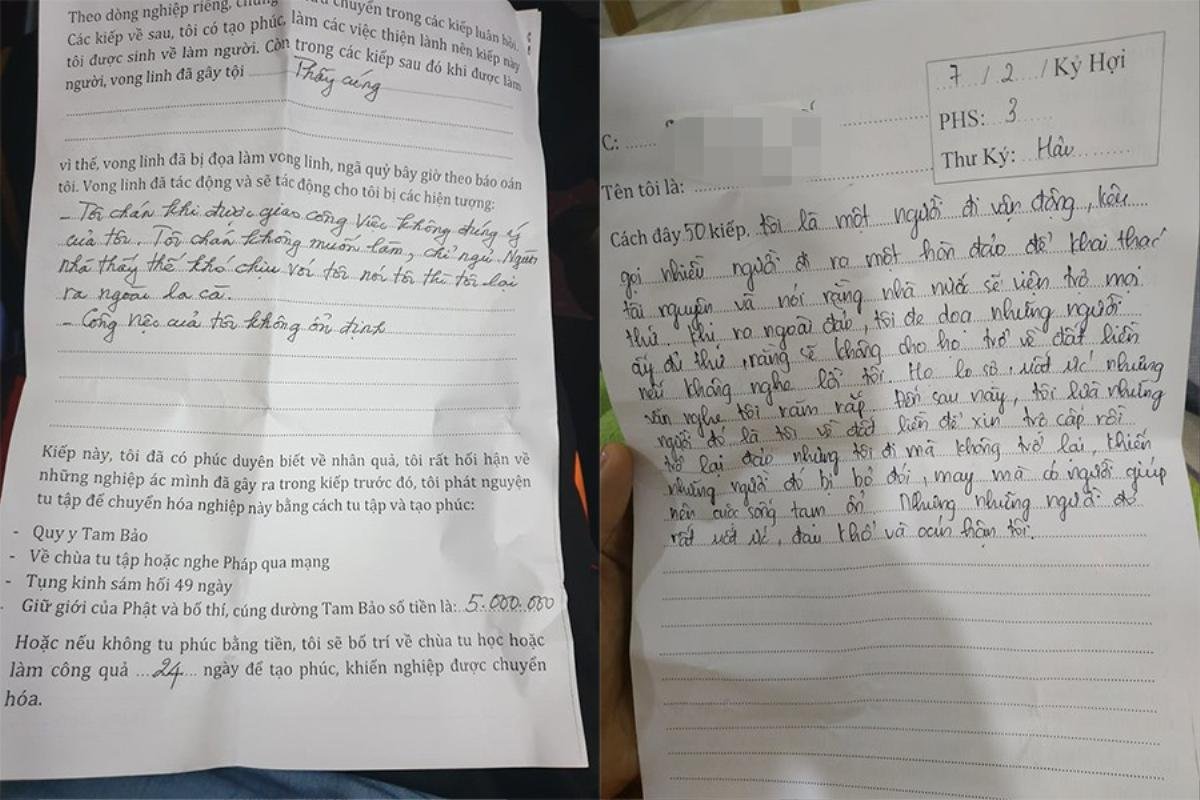 Theo dòng nghiệp riêng, chúng chuyển trong các kiếp luân hồi.
Các kiếp về sau, tôi có tạo phúc, làm các việc thiện lành nên kiếp này
tôi được sinh về làm người. Còn trong các kiếp sau đó khi được làm
người, vong linh đã gây tội Thầy cúng
vì thế, vong linh đã bị đọa làm vong linh, ngã quỷ bây giờ theo báo oán
tôi. Vong linh đã tác động và sẽ tác động cho tôi bị các hiện tượng:
- Tôi chán khi được giao công việc không đúng ý
của tôi. Tôi chán không muốn làm, chỉ ngủ. Người
nhà thấy thế khó chịu với tôi nói tôi thì tôi lại
ra ngoài la cà.
- Công việc của tôi không ổn định
Kiếp này, tôi đã có phúc duyên biết về nhân quả, tôi rất hối hận về
những nghiệp ác mình đã gây ra trong kiếp trước đó, tôi phát nguyện
tu tập để chuyển hóa nghiệp này bằng cách tu tập và tạo phúc:
- Quy y Tam Bảo
- Về chùa tu tập hoặc nghe Pháp qua mạng
- Tụng kinh sám hối 49 ngày
- Giữ giới của Phật và bố thí, cúng dường Tam Bảo số tiền là: 5.000.000
Hoặc nếu không tu phúc bằng tiền, tôi sẽ bố trí về chùa tu học hoặc
làm công quả ...24... ngày để tạo phúc, khiến nghiệp được chuyển
hóa.
7 / 2 / Kỷ Hợi
PHS: 3
Thư Ký: Hậu
C:
Tên tôi là:
Cách đây 50 kiếp, tôi là một người đi vận động, kêu
gọi nhiều người đi ra một hòn đảo để khai thác
tài nguyên và nói rằng nhà nước sẽ viện trợ mọi
thứ. Khi ra ngoài đảo, tôi đe dọa những người
ấy đủ thứ, rằng sẽ không cho họ trở về đất liền
nếu không nghe lời tôi. Họ lo sợ, uất ức nhưng
vẫn nghe tôi răm rắp. Đến sau này, tôi lừa những
người đó là tôi về đất liền để xin trợ cấp rồi
trở lại đảo nhưng tôi đi mà không trở lại, khiến
những người đó bị bỏ đói, may mà có người giúp
nên cuộc sống tạm ổn. Nhưng những người đó
rất uất ức, đau khổ và oán hận tôi.